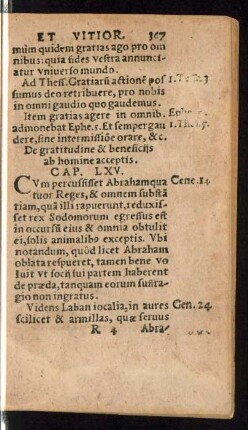 ET VITIOR. 367
mum quidem gratias ago pro om
nibus: quia fides vestra annunci-
atur vniuerso mundo.
Ad Thess. Gratiarũ actionẽ pos 1. T. 3
sumus deo retribuere, pro nobis
in omni gaudio quo gaudemus.
Item gratias agere in omnib. Ephe.
admonebat Ephe. 5. Et semper gau 1. Th. 5.
dere, sine intermissiõe orare, &c.
De gratitudine & beneficijs
ab homine acceptis.
CAP. LXV.
CVm percussisset Abraham qua Gene. 14
tuor Reges, & omnem substã
tiam, quã illi rapuerunt, reduxis-
set rex Sodomorum egressus est
in occursũ eius & omnia obtulit
ei, solis animalibꝰ exceptis. Vbi
notandum, quòd licet Abraham
oblata respueret, tamen bene vo
luit vt socij sui partem haberent
de præda, tanquam eorum suffra-
gio non ingratus.
Videns Laban iocalia, in aures Gen. 24
scilicet & armillas, quæ seruus
R 4 Abra-